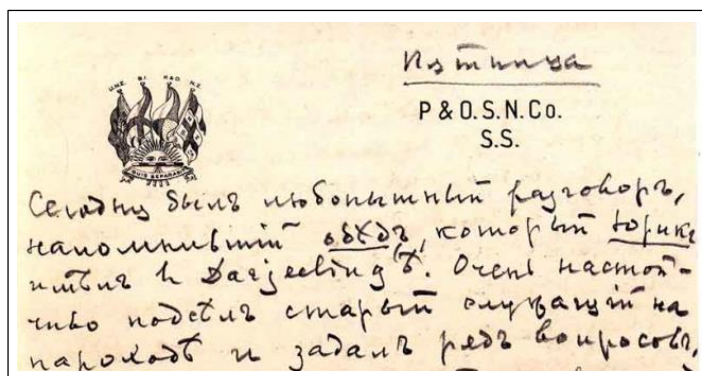 Пятница
P & O. S. N. Co.
S.S.
QUIS SEPARABIT
Сегодня былъ любопытный разговоръ,
напомнившій обѣдъ, который Юрикъ
имѣлъ въ Darjeeling'ѣ. Очень настой-
чиво подсѣлъ старый служащій на
пароходѣ и задалъ рядъ вопросовъ,